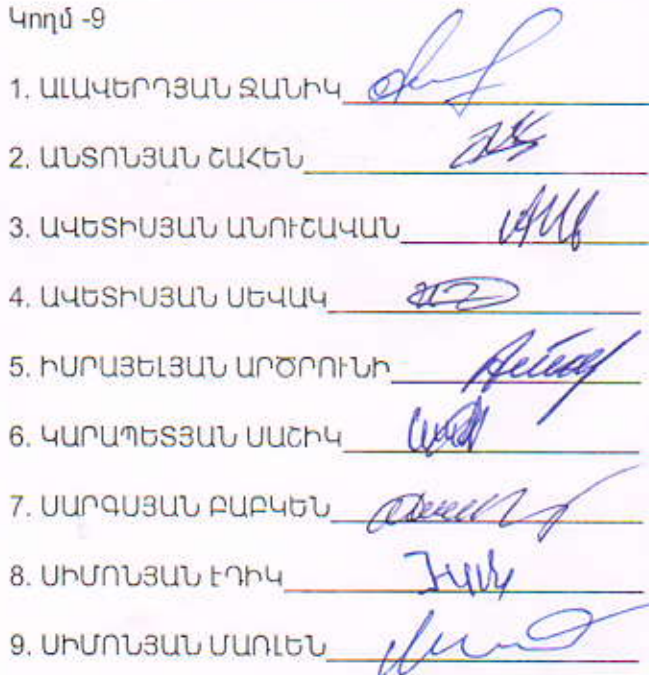 Կողմ -9
1. ԱԼԱՎԵՐԴՅԱՆ ՋԱՆԻԿ
2. ԱՆՏՈՆՅԱՆ ՇԱՀԵՆ
3. ԱՎԵՏԻՍՅԱՆ ԱՆՈՒՇԱՎԱՆ
4. ԱՎԵՏԻՍՅԱՆ ՍԵՎԱԿ
5. ԻՍՐԱՅԵԼՅԱՆ ԱՐԾՐՈՒՆԻ
6. ԿԱՐԱՊԵՏՅԱՆ ՍԱՇԻԿ
7. ՍԱՐԳՍՅԱՆ ԲԱԲԿԵՆ
8. ՍԻՄՈՆՅԱՆ ԷԴԻԿ
9. ՍԻՄՈՆՅԱՆ ՄԱՌԼԵՆ